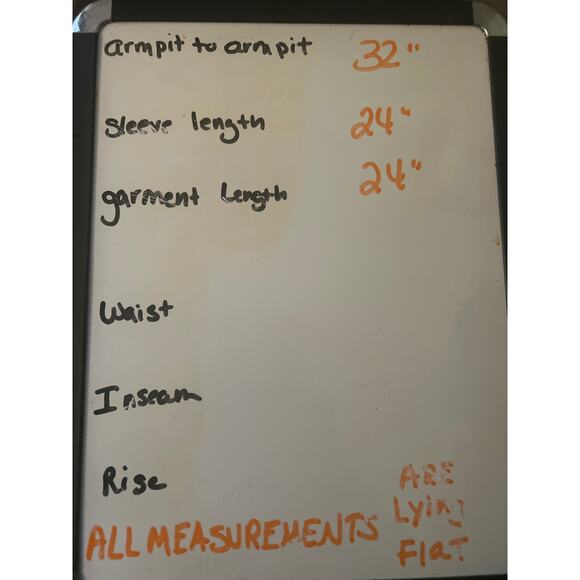 armpit to armpit 32"
Sleeve length 24"
garment Length 24"
Waist
Inseam
Rise
ALL MEASUREMENTS ARE
Lying
Flat